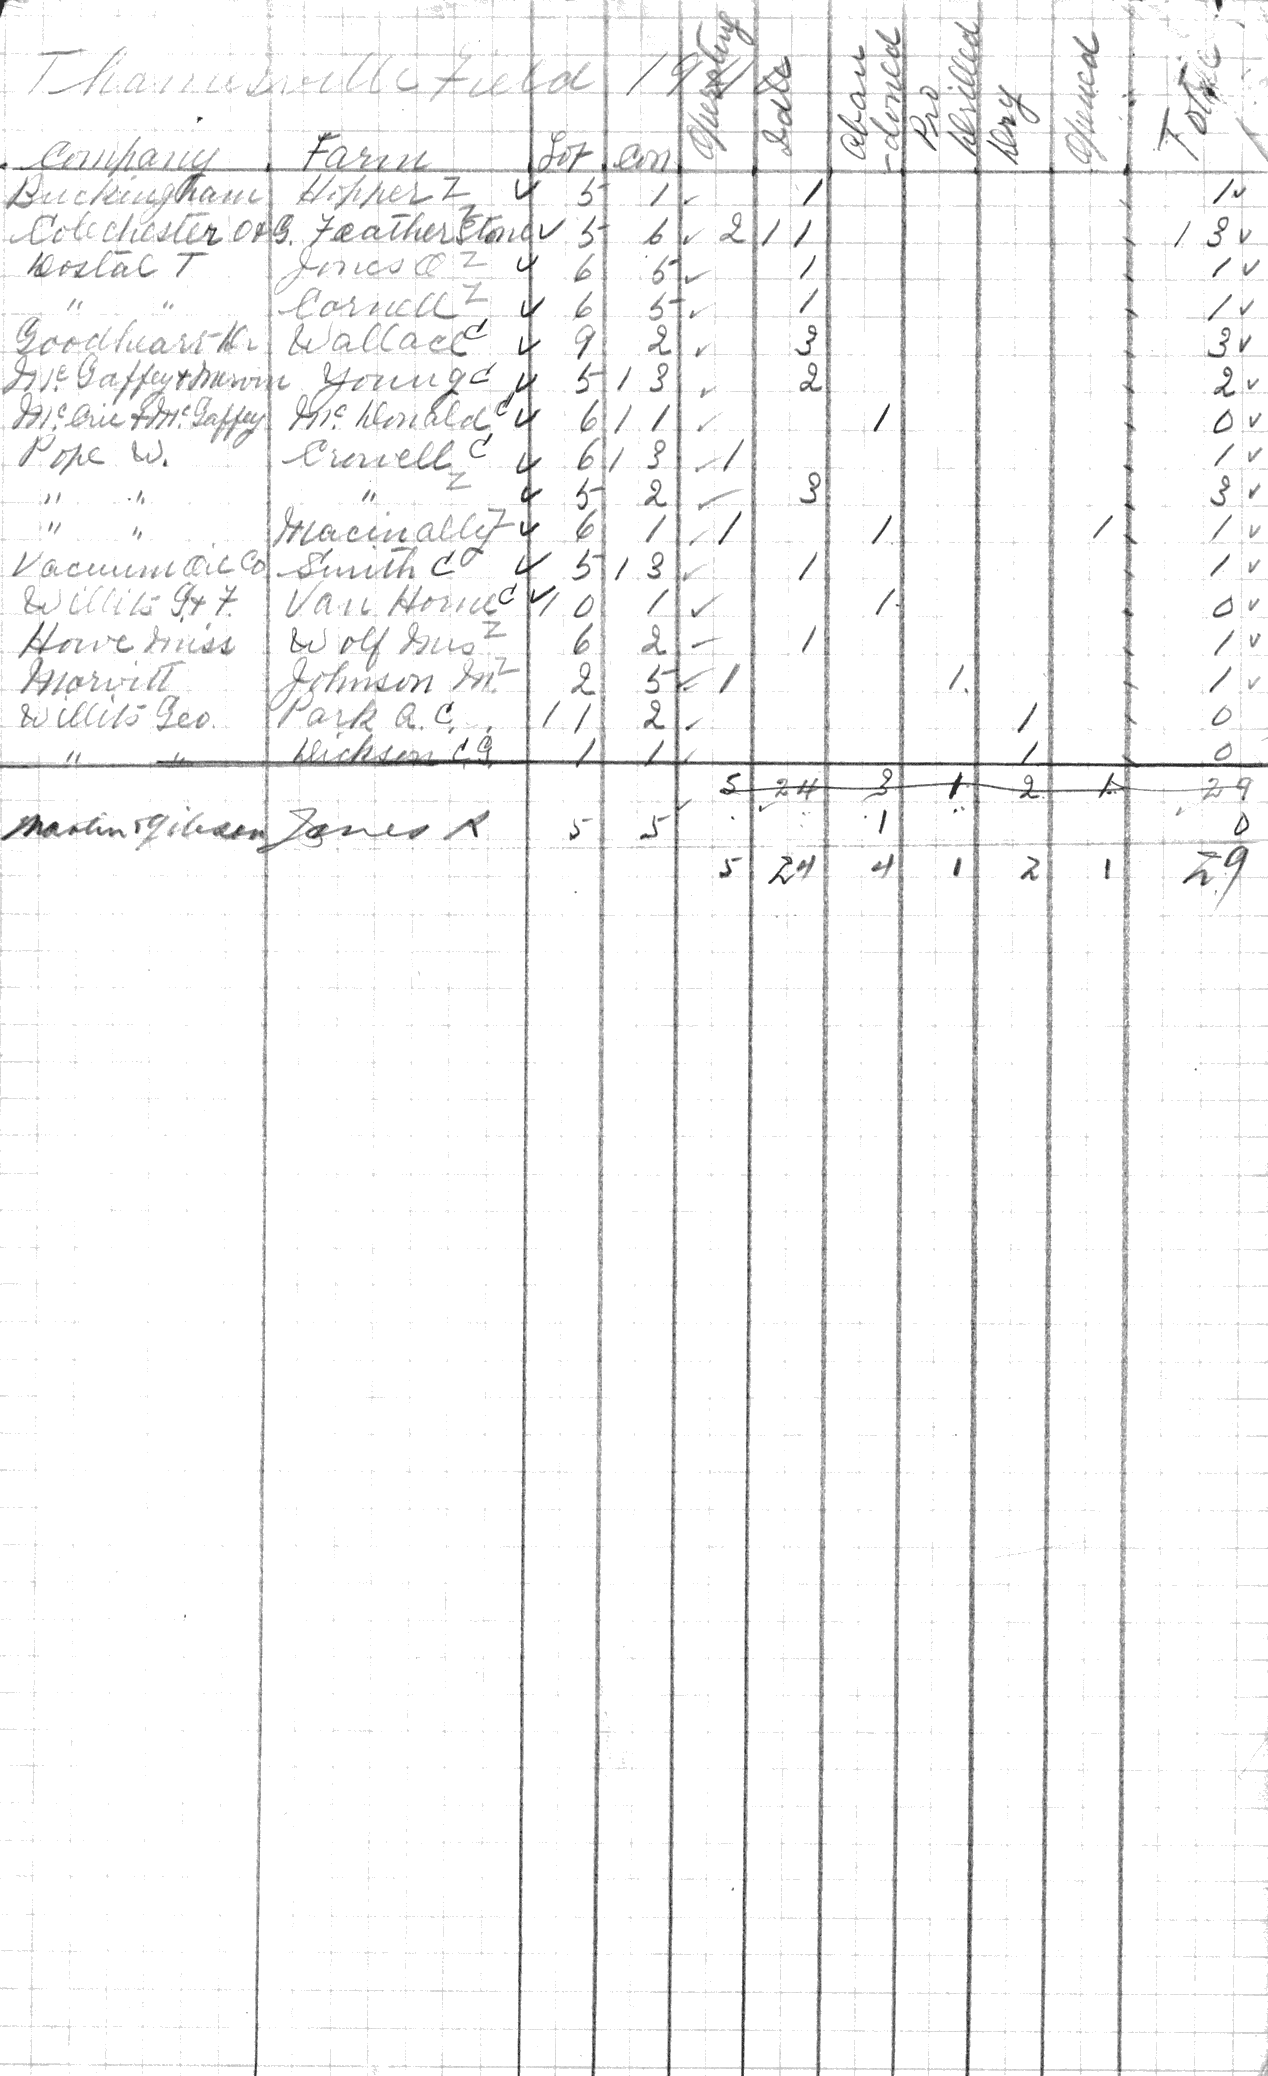 Thamesville Field 19
Company Farm Lot Con Operating Idle Aban-doned Pro Drilled Dry Opened Total
Buckingham Hopper Z ✓ 5 1 ✓ 1 1 ✓
Colechester O & G. Featherstone Z ✓ 5 6 ✓ 2 11 13 ✓
Dostal T Jones O Z ✓ 6 5 ✓ 1 1 ✓
" " Cornell Z ✓ 6 5 ✓ 1 1 ✓
Goodheart Dr Wallace C ✓ 9 2 ✓ 3 3 ✓
McGaffey & Young C ✓ 5 13 ✓ 2 2 ✓
& McGaffey McDonald C ✓ 6 11 ✓ 1 0 ✓
Pope W. Crowell C ✓ 6 13 ✓ 1 1 ✓
" " " Z ✓ 5 2 ✓ 3 3 ✓
" " Macinally Z ✓ 6 1 ✓ 1 1 1 1 ✓
Vacuum Oil Co Smith C ✓ 5 13 ✓ 1 1 ✓
Willits G & F. Van Horne C ✓ 10 1 ✓ 1 0 ✓
Howe Miss Wolf Mrs Z 6 2 ✓ 1 1 ✓
Johnson M. Z 2 5 ✓ 1 1 1 ✓
Willits Geo. Park A. C. 11 2 ✓ 1 0
" " Dickson C. G. 1 1 ✓ 1 0
5 24 3 1 2 1 29
Martin & Gibson Jones R 5 5 1 0
5 24 4 1 2 1 29